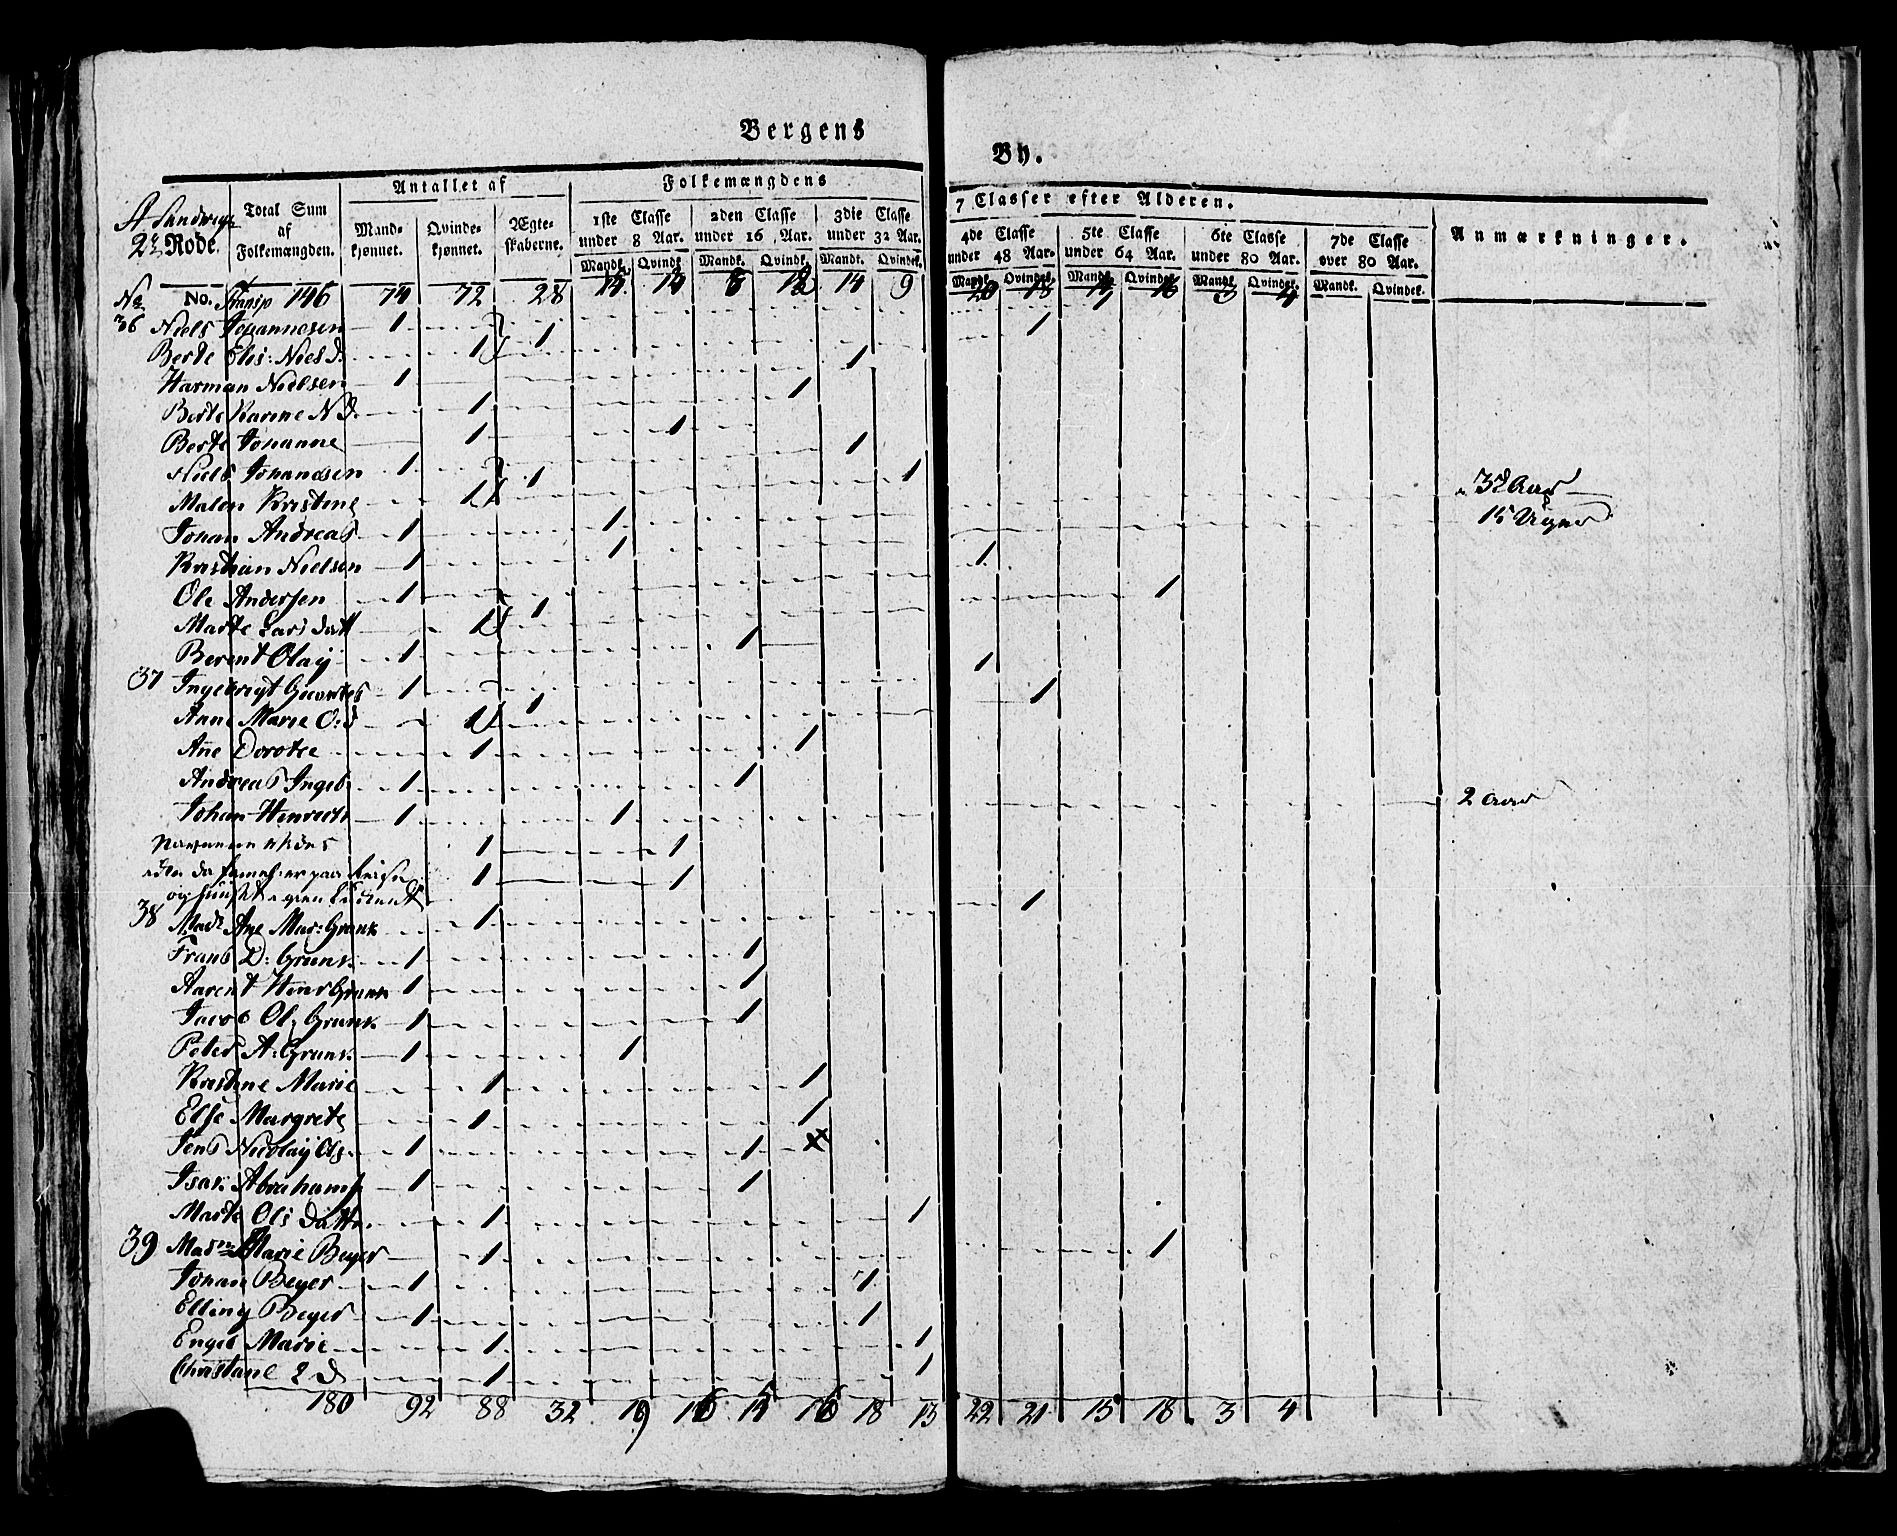 Bergens
By.
A Sandwigs
2de Rode.
Total Sum
af
Folkemængden.
Antallet af
Mand-
kjønnet.
Qvinde-
kjønnet.
Ægte-
skaberne.
Folkemængdens
1ste Classe
under 8 Aar.
Mandk.
Qvindk
2den Classe
under 16 Aar.
Mandk.
Qvindk.
3die Classe
under 32 Aar.
Mandk.
Qvindek.
7 Classer efter Alderen.
4de Classe
under 48 Aar.
Mandk
Qvindek.
5te Classe
under 64 Aar.
Mandk.
Qvindek.
6te Classe
under 80 Aar.
Mandk
Qvindek.
7de Classe
over 80 Aar.
Mandk.
Qvindek.
Anmærkninger.
No No. Transp 146 74 72 28 14 9
36 Niels Johannesen 1 1 1
Berte Elis: Niels d. 1 1
Harman Nielsen 1 1
Berte Karine N d. 1 1
Berte Johanne 1 1
Niels Johansen 1 1 1
Malen Kristine 1 32 Aar
Johan Andreas 1 1 15 Uger
Kristian Nielsen 1 1 1
Ole Andersen 1 1 1
Marte Lars datt 1
Berent Olaij 1 1 1
37 Ingebrigt 1 1 1
Anne Marie O: d 1
Añe Dorotee 1 1
Andreas Ingeb. 1 1
Johan Henrich 1 1 2 Aar
1 1
1 1
38 Mad: Ane Mar: Grunk 1 1
Frans D: Grunk. 1 1
Aarent Grunk 1 1
Jacob Ol: Grunk. 1 1
Peter A: Grunk. 1 1
Kristine Marie 1 1
Else Margrete 1 1
Jens Nicolaij Ols. 1 1 x
Isak Abrahams 1 1
Marte Ols datt. 1 1
39 Mad Marie Beyer 1 1
Johan Beyer 1 1
Elling Beyer 1 1
Engel Marie 1 1
Christane 1 1
180 92 88 32 19 16 15 16 18 13 22 21 15 18 3 4